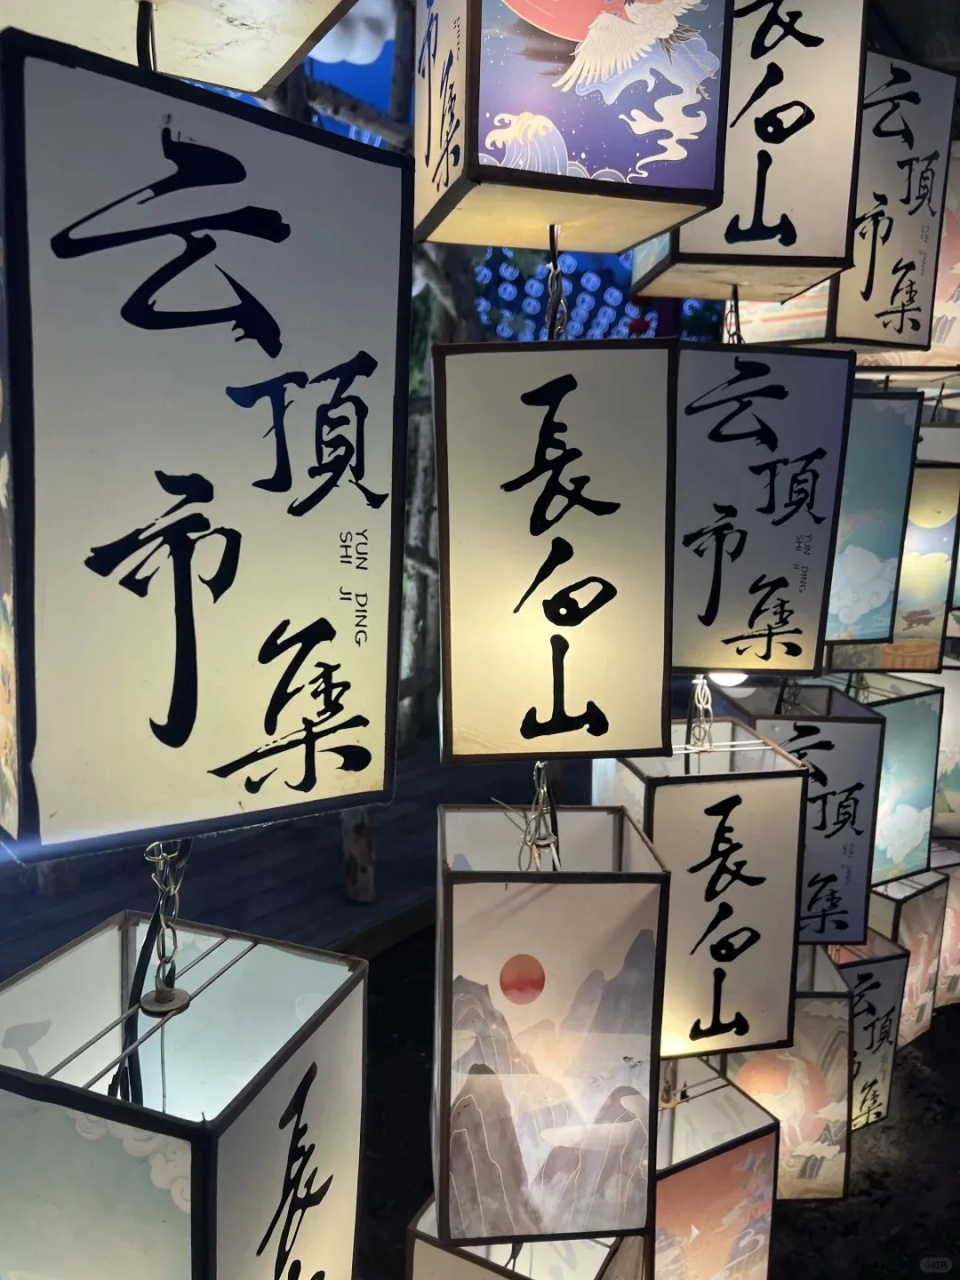 云頂市集
YUN DING
SHI JI
市集
長白山
云頂市集
長白山
云頂市集
YUN DING
SHI JI
長白山
云頂市集
云頂市集
長